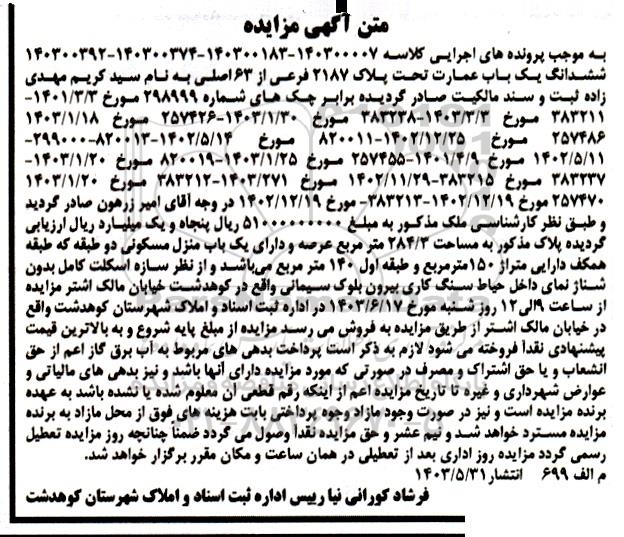 متن آگهی مزایده
به موجب پرونده های اجرایی کلاسه ۱۴۰۳۰۰۰۰۷-۱۴۰۳۰۰۱۸۳-۱۴۰۳۰۰۳۷۴-۱۴۰۳۰۰۳۹۲
ششدانگ یک باب عمارت تحت پلاک ۲۱۸۷ فرعی از ۶۳ اصلی به نام سید کریم مهدی
زاده ثبت و سند مالکیت صادر گردیده برابر چک های شماره ۲۹۸۹۹۹ مورخ ۱۴۰۱/۳/۳-
۳۸۳۲۱۱ مورخ ۱۴۰۳/۳/۳-۳۸۳۲۳۸ مورخ ۱۴۰۳/۱/۳۰-۲۵۷۴۲۶ مورخ ۱۴۰۳/۱/۱۸
۲۵۷۴۸۶ مورخ ۱۴۰۲/۱۲/۲۵-۸۲۰۰۱۱ مورخ ۱۴۰۲/۵/۱۳-۸۲۰۰۱۳-۲۹۹۰۰۰-
۱۴۰۲/۵/۱۱ مورخ ۱۴۰۱/۴/۹-۲۵۷۴۵۵ مورخ ۱۴۰۳/۱/۲۵-۸۲۰۰۱۹ مورخ ۱۴۰۳/۱/۲۰-
۳۸۳۲۳۷ مورخ ۳۸۳۲۱۵-۱۴۰۲/۱۱/۲۹ مورخ ۱۴۰۳/۲۷۱-۳۸۳۲۱۲ مورخ ۱۴۰۳/۱/۲۰
۲۵۷۴۷۰ مورخ ۱۴۰۲/۱۲/۱۹-۳۸۳۲۱۳- مورخ ۱۴۰۲/۱۲/۱۹ در وجه آقای امیر زرهون صادر گردید
و طبق نظر کارشناسی ملک مذکور به مبلغ ۵۱۰۰۰۰۰۰۰۰۰ ریال پنجاه و یک میلیارد ریال ارزیابی
گردیده پلاک مذکور به مساحت ۲۸۴/۳ متر مربع عرصه و دارای یک باب منزل مسکونی دو طبقه که طبقه
همکف دارایی متراژ ۱۵۰مترمربع و طبقه اول ۱۴۰ متر مربع می‌باشد و از نظر سازه اسکلت کامل بدون
شناژ نمای داخل حیاط سنگ کاری بیرون بلوک سیمانی واقع در کوهدشت خیابان مالک اشتر مزایده
از ساعت ۹الی۱۲ روز شنبه مورخ ۱۴۰۳/۶/۱۷ در اداره ثبت اسناد و املاک شهرستان کوهدشت واقع
در خیابان مالک اشتر از طریق مزایده به فروش می رسد مزایده از مبلغ پایه شروع و به بالاترین قیمت
پیشنهادی نقداً فروخته می شود لازم به ذکر است پرداخت بدهی های مربوط به آب برق گاز اعم از حق
انشعاب و یا حق اشتراک و مصرف در صورتی که مورد مزایده دارای آنها باشد و نیز بدهی های مالیاتی و
عوارض شهرداری و غیره تا تاریخ مزایده اعم از اینکه رقم قطعی آن معلوم شده یا نشده باشد به عهده
برنده مزایده است و نیز در صورت وجود مازاد وجوه پرداختی بابت هزینه های فوق از محل مازاد به برنده
مزایده مسترد خواهد شد و نیم عشر و حق مزایده نقداً وصول می گردد ضمناً چنانچه روز مزایده تعطیل
رسمی گردد مزایده روز اداری بعد از تعطیلی در همان ساعت و مکان مقرر برگزار خواهد شد.
م الف ۶۹۹ انتشار۱۴۰۳/۵/۳۱
فرشاد کورانی نیا رییس اداره ثبت اسناد و املاک شهرستان کوهدشت